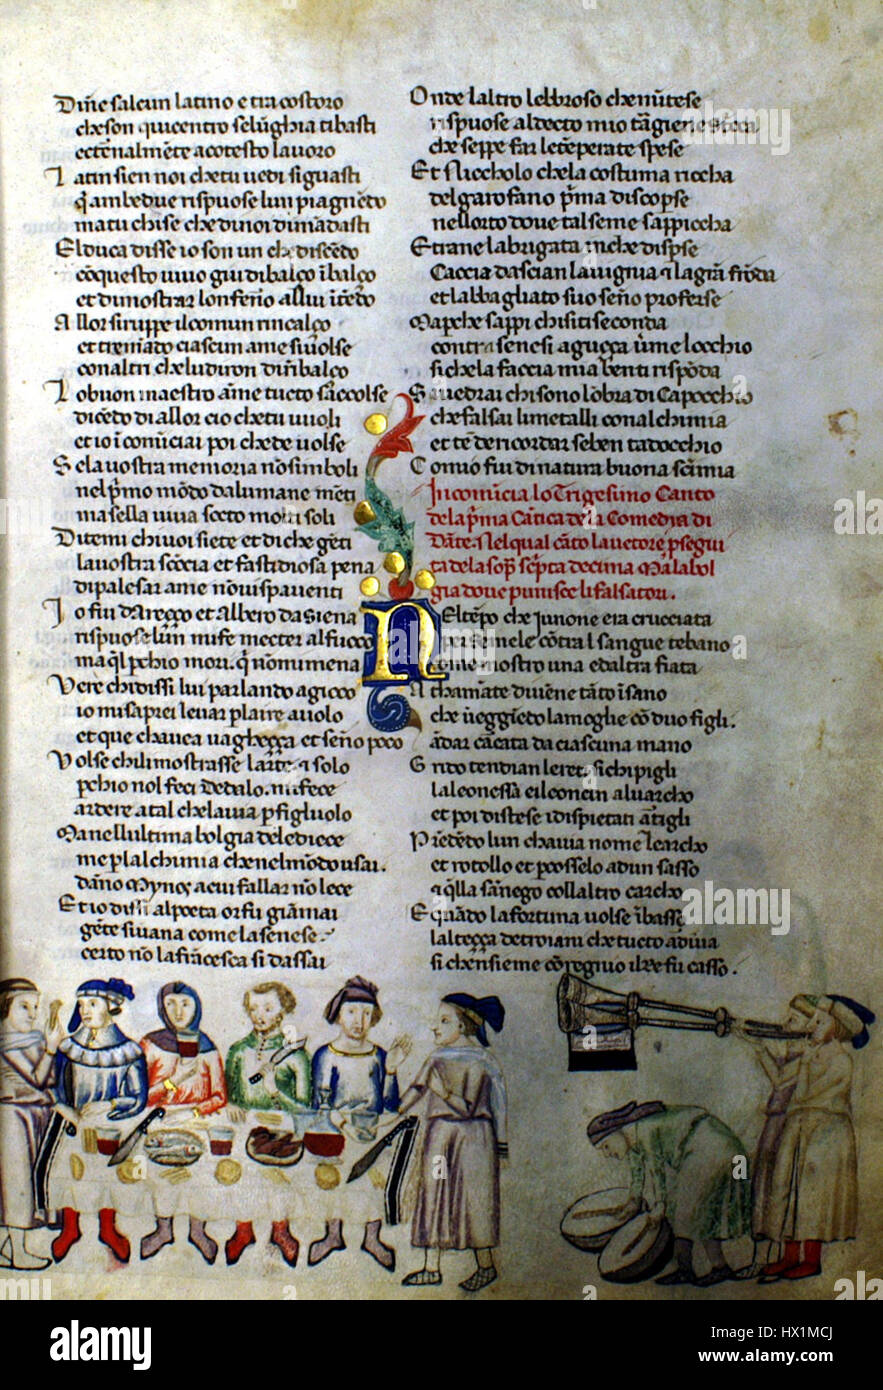 Dim̄e salcun latino e tra costoro
che son quicentro se lūghia ti basti
ecternalmēte a cotesto lavoro
Latin sien noi che tu vedi si guasti
q̄ ambedue rispuose lun piagnēdo
ma tu chi se che di noi dimādasti
El duca disse io son un che discēdo
cō questo vivo giu di balço ī balço
et di mostrar lonferno a llui ītēdo
Allor si ruppe il comun rincalço
et tremādo ciascun a me si volse
con altri che ludiron di rībalço
Lo buon maestro a me tucto saccolse
dicēdo di a llor cio che tu vuoli
et io ī cominciai poi che de volse
Se la vostra memoria nō simboli
nel p̄mo mōdo da lumane mēti
ma sella viva socto molti soli
Ditemi chi voi siete et di che gēti
la vostra scōcia et fastidiosa pena
di palesar a me nō vi spaventi
Io fui dareçço et Albero da siena
rispuose lun mi fe mecter al fuoco
ma q̄l p̄ chio mori q̄ nō mi mena
Vere chi dissi lui parlando a gioco
io mi saprei levar p laire a volo
et que chavea vagheçça et sēno poco
Volse chi li mostrasse larte & solo
p̄chio nol feci dedalo mi fece
ardere a tal che lavia p figliuolo
Ma nell ultima bolgia de le diece
me p lalchimia che nel mōdo usai
dānō Mynos a cui fallar nō lece
Et io dissi al poeta or fu giāmai
gēte si vana come la senese
certo nō la francesca si dassai
Onde laltro lebbroso che mītese
rispuose al decto mio tāgiene stricca
che seppe far le tēperate spese
Et Niccholo che la costuma riccha
del garofano p̄ma discoperse
nellorto dove tal seme sappiccha
Et rane la brigata in che disp̄se
Caccia dascian la vigna & la grā frōda
et labbagliato suo sēno proferse
Ma p̄che sappi chi si ti seconda
contra senesi aguçça ver̄ me locchio
si che la faccia mia ben ti rispōda
Si vedrai chi sono lōbra di Capocchio
che falsai li metalli con alchimia
et te dēn cordar se ben tadocchio
Comio fui di natura buona scīmia
Incomincia lo Trigesimo Canto
de la p̄ma Cātica de la Comedia di
Dāte. Nel qual cāto lauctore p̄segui
ta de la sop̄ scp̄ta decima Malabol
gia dove punisce li falsatori.
Nel tēpo che Junone era crucciata
per semele cōtra l sangue tebano
come mostro una ed altra fiata
Achamāte divēne tāto īsano
che veggiēdo la moglie cō duo figli.
ādar cārcata da ciascuna mano
Grido tendian le reti si chi pigli
la leonessa ei leoncin al varcho
et poi distese i dispietati artigli
Prēdēdo lun chavia nome learcho
et rotollo et p̄cosselo ad un sasso
& q̄lla sānego collaltro carcho
E quādo la fortuna volse ībasso
lalteçça de troiani che tucto ardiva
si che nsieme cō regno il re fu casso.
alamy
Image ID: HX1MCJ
www.alamy.com